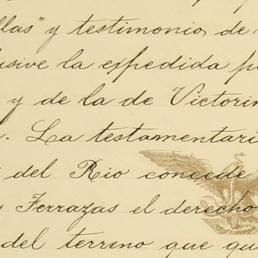 llas" y testimonio de
usive la expedida p
y de la de Victorin
. La testamentari
del Rio concede
y Terrazas el derecho
del terreno que qu